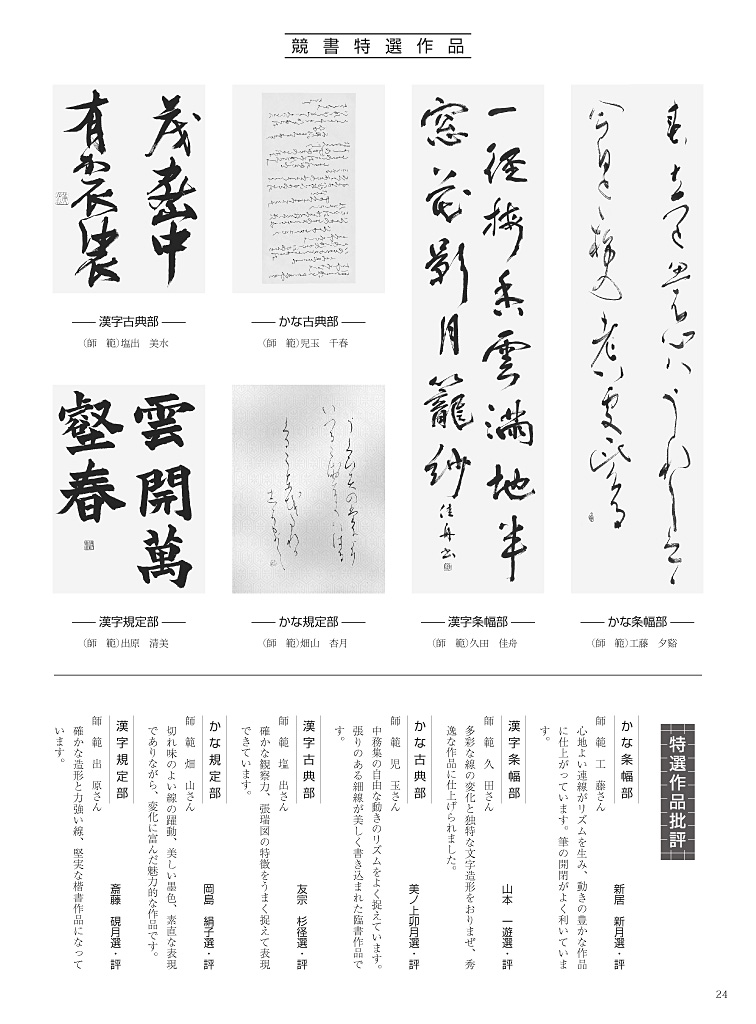 競書特選作品
茂密中
有
漢字古典部
（師　範）塩出　美水
かな古典部
（師　範）児玉　千春
一径梅香雲満地半
窓花影月籠紗
佳舟書
漢字条幅部
（師　範）久田　佳舟
かな条幅部
（師　範）工藤　夕谿
雲開萬
壑春
漢字規定部
（師　範）出原　清美
かな規定部
（師　範）畑山　杏月
特選作品批評
かな条幅部
新居　新月選・評
師　範　工　藤さん
心地よい連線がリズムを生み、動きの豊かな作品
に仕上がっています。筆の開閉がよく利いていま
す。
漢字条幅部
山本　一遊選・評
師　範　久　田さん
多彩な線の変化と独特な文字造形をおりまぜ、秀
逸な作品に仕上げられました。
かな古典部
美ノ上卯月選・評
師　範　児　玉さん
中務集の自由な動きのリズムをよく捉えています。
張りのある細線が美しく書き込まれた臨書作品で
す。
漢字古典部
友宗　杉径選・評
師　範　塩　出さん
確かな観察力、張瑞図の特徴をうまく捉えて表現
できています。
かな規定部
岡島　絹子選・評
師　範　畑　山さん
切れ味のよい線の躍動、美しい墨色、素直な表現
でありながら、変化に富んだ魅力的な作品です。
漢字規定部
斎藤　硯月選・評
師　範　出　原さん
確かな造形と力強い線、堅実な楷書作品になって
います。
24